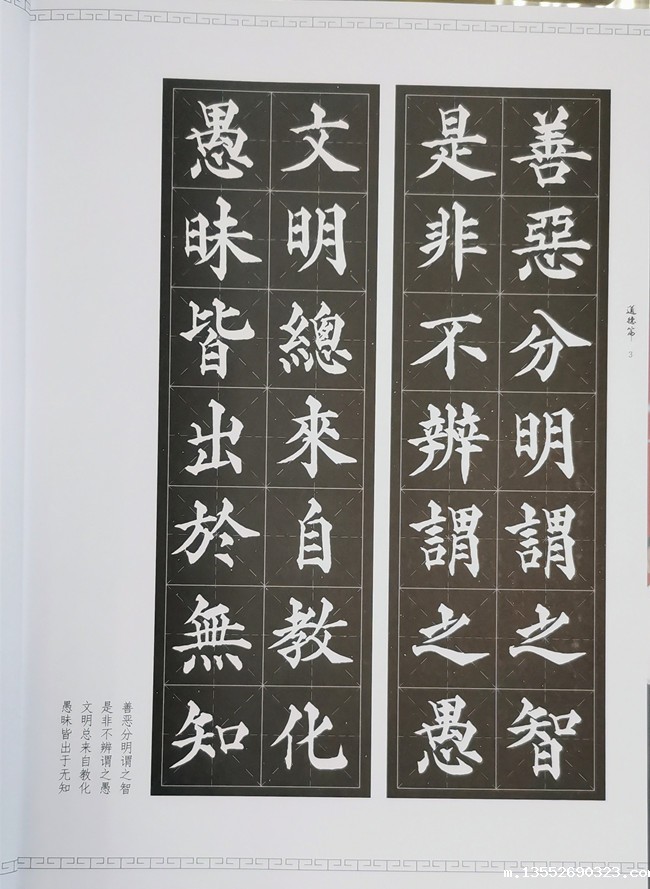 善惡分明謂之智
是非不辨謂之愚
文明總來自教化
愚昧皆出於無知
道德篇
3
善恶分明谓之智
是非不辨谓之愚
文明总来自教化
愚昧皆出于无知
m.13552690323.com